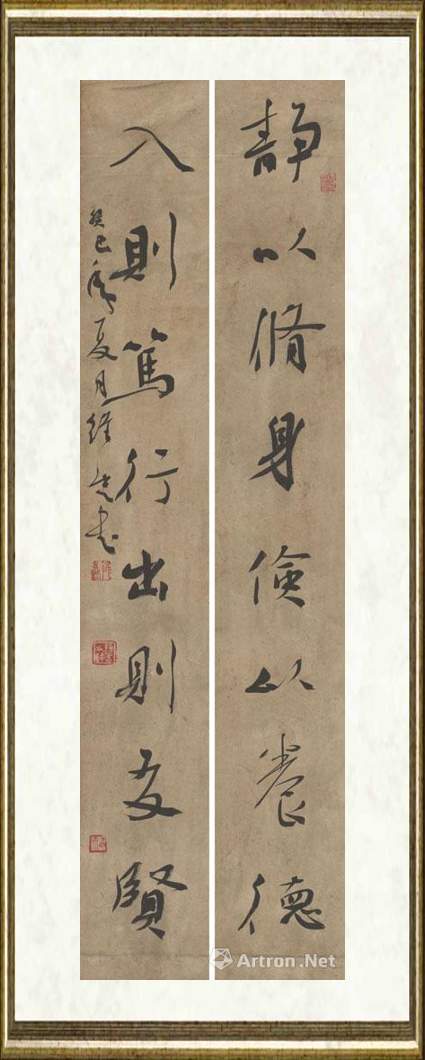 靜以脩身儉以養德
入則篤行出則友賢
癸巳年夏月維
書
Artron.Net